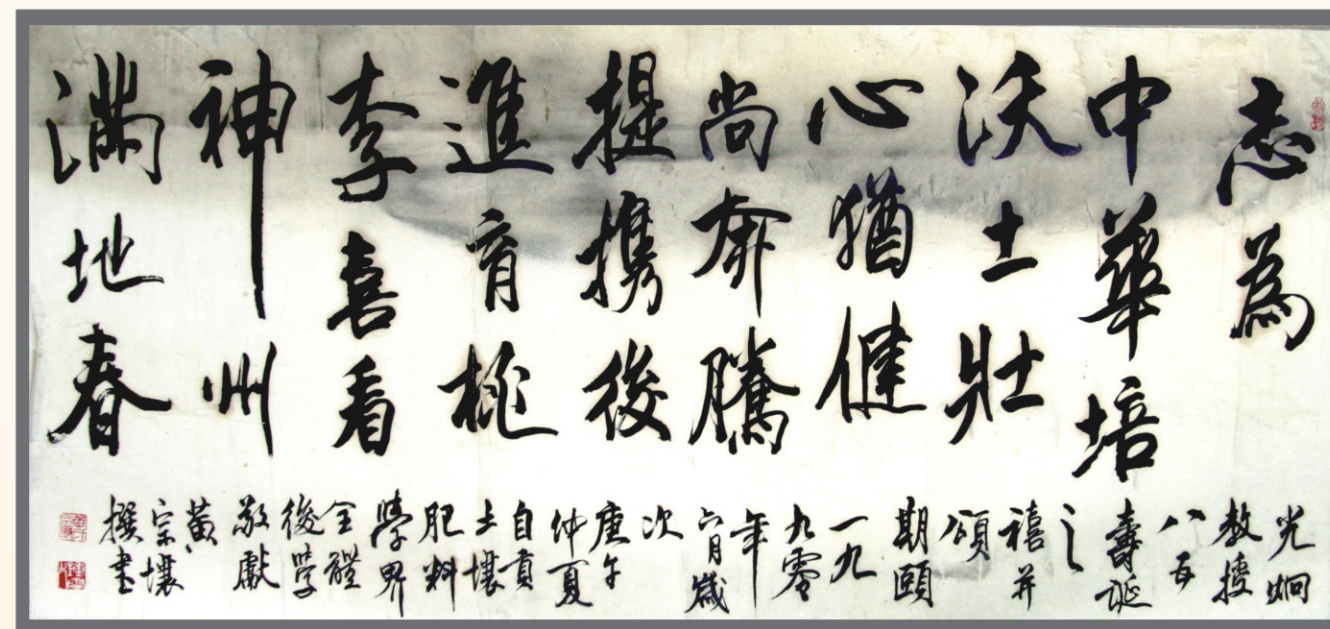 志為
中華培
沃土壯
心猶健
尚奔騰
提携後
進育桃
李喜看
神州
滿地春
光炯
教授
八五
壽誕
之
禧并
頌
期頤
一九
九零
年
六月歲
次
庚午
仲夏
自貢
土壤
肥料
學界
全體
後學
敬獻
黄
宗壤
撰書